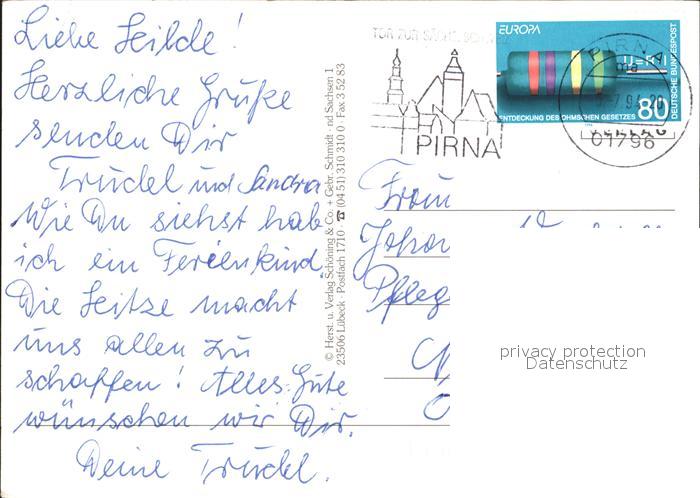 Liebe Hilde!
Herzliche Grüße
senden Dir
Trudel und Sandra
Wie Du siehst hab
ich ein Ferienkind.
Die Heitze macht
uns allen zu
schaffen! Alles Gute
wünschen wir Dir.
Deine Trudel.
© Herst. u. Verlag Schöning & Co. + Gebr. Schmidt
23506 Lübeck · Postfach 1710 · ☎ (04 51) 310 310 0 · Fax 3 52 83
TOR ZUR SÄCHS. SCHWEIZ
PIRNA
EUROPA
U=R·I
DEUTSCHE BUNDESPOST
80
ENTDECKUNG DES OHMSCHEN GESETZES
PIRNA 1
01796
Frau
Pfleg
privacy protection
Datenschutz